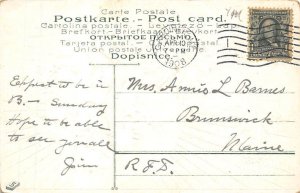 Carte Postale
Postkarte - Post card.
Cartolina postale - Levelező-Lap
Brefkort - Briefkaart
ОТКРЫТОЕ ПИСЬМО
Tarjeta postal
Union postale universelle
Dopisnice
1908
Expect to be in
B— Sunday
Hope to be able
to see you all
Mrs. L. Barnes
Brunswick
Maine
R.F.D.